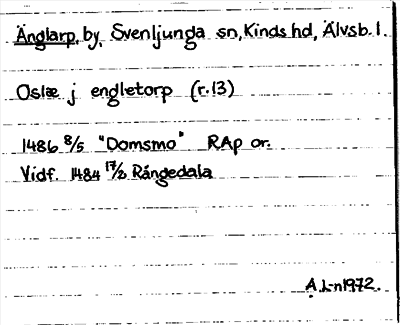 Änglarp, by, Svenljunga sn, Kinds hd, Älvsb. l.
Oslæ j engletorp (r.13)
1486 8/5 "Domsmo" RAp or.
Vidf. 1484 17/2 Rångedala
A.L-n1972.